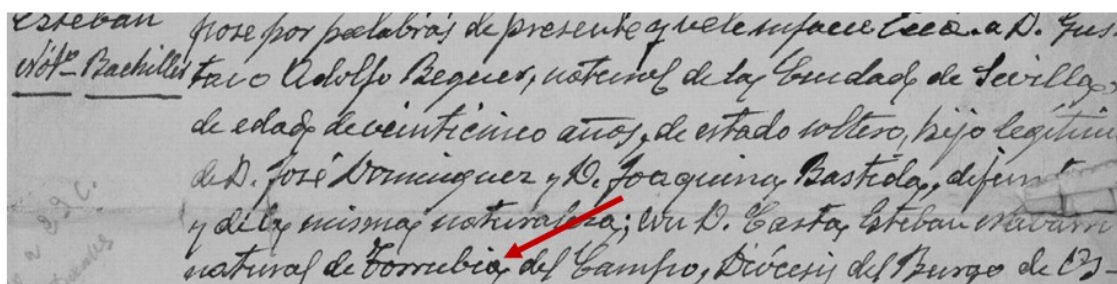 Esteban
Nót.ª Bachiller
pose por palabras de presente y vele infacie Ecca. a D. Gus-
tavo Adolfo Bequer, natural de la Ciudad de Sevilla
de edad de veinticinco años, de estado soltero, hijo legítim
de D. José Dominguez y D. Joaquina Bastida, difun
y de la misma naturaleza; con D. Casta Esteban Navarro
natural de Torrubia del Campo, Diócesis del Burgo de Os-